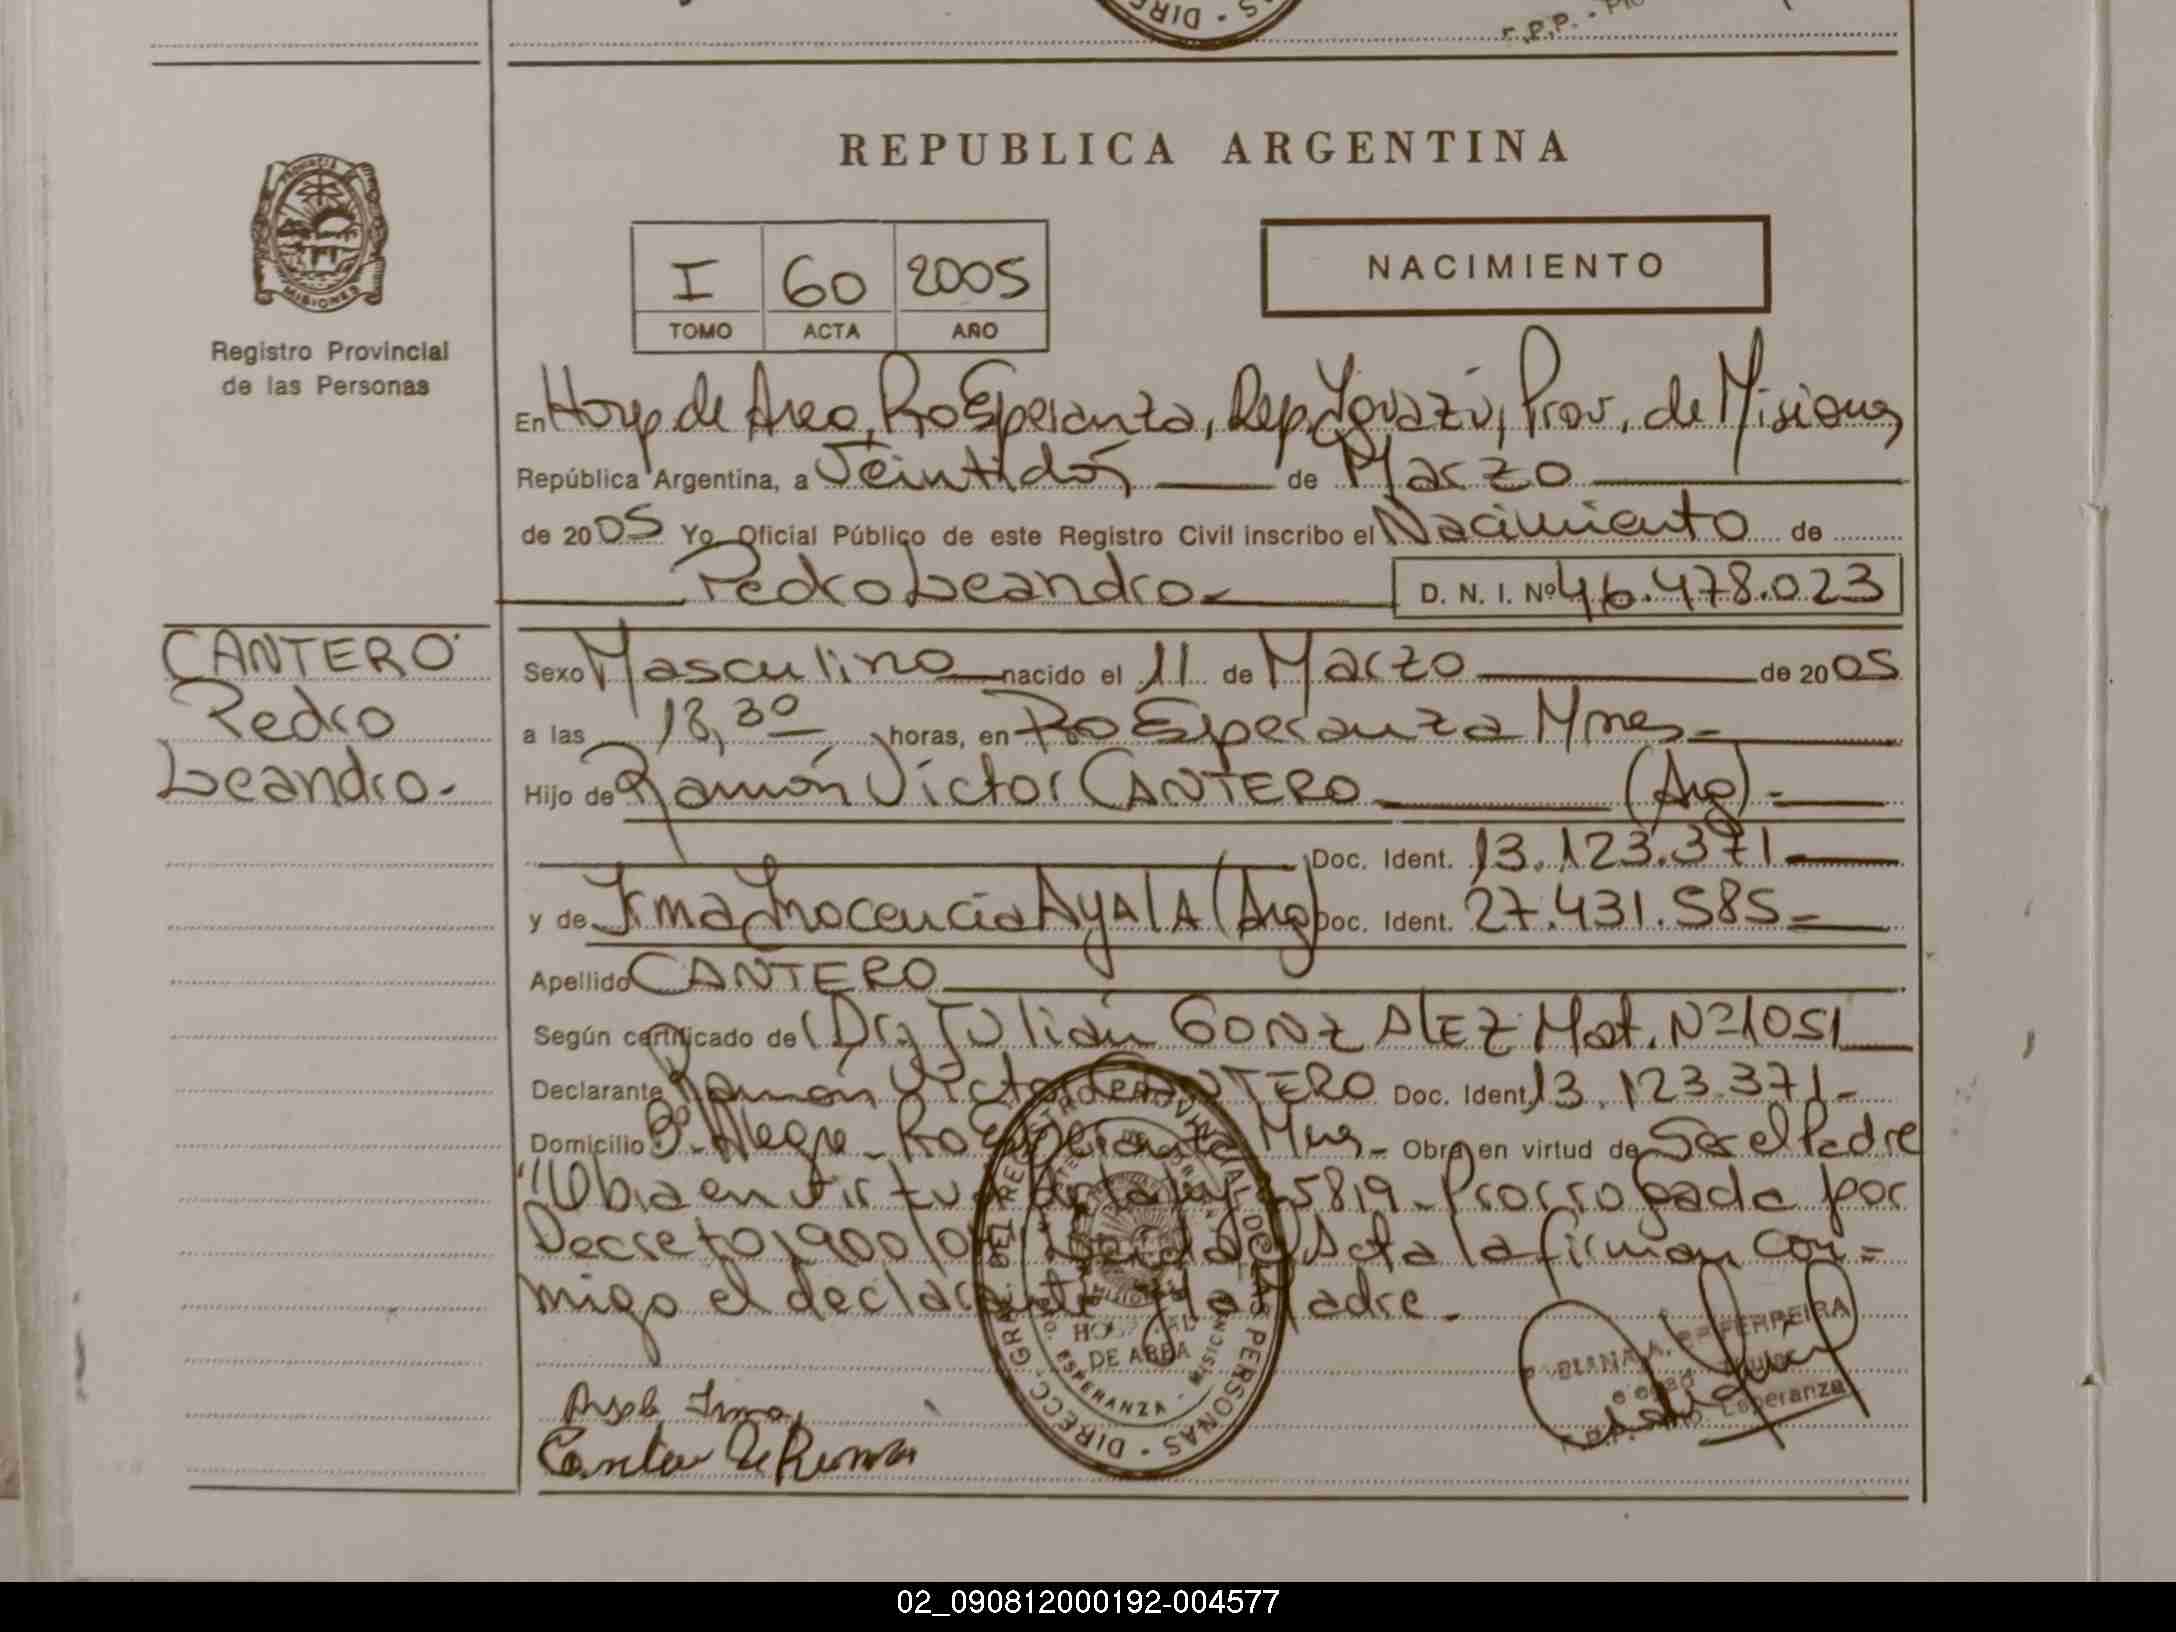 DIRE
r.P.P.
REPUBLICA ARGENTINA
PROVINCIA
MISIONES
Registro Provincial
de las Personas
I 60 2005
TOMO ACTA AÑO
NACIMIENTO
En Hosp. de Area, Pto Esperanza, Dep. Iguazú, Prov. de Misiones
República Argentina, a Veintidós de Marzo
de 2005 Yo Oficial Público de este Registro Civil inscribo el Nacimiento de
Pedro Leandro.- D. N. I. Nº 46.478.023
CANTERO
Pedro
Leandro.-
Sexo Masculino nacido el 11 de Marzo de 2005
a las 18,30 horas, en Pto Esperanza Mnes.-
Hijo de Ramón Víctor CANTERO (Arg).-
Doc. Ident. 13.123.371.-
y de Irma Inocencia AYALA (Arg) Doc. Ident. 27.431.585.=
Apellido CANTERO
Según certificado de (Dr) Julián GONZALEZ Mat. Nº 1051
Declarante Ramón Víctor CANTERO Doc. Ident. 13.123.371.-
Domicilio Bº Alegre - Pto Esperanza Mnes.- Obra en virtud de Ser el Padre
"Obra en Virtud 25819 - Prorrogada por
Decreto 1900/04 Acta la firman con=
migo el declarante y la Madre.-
DIRECC. GRAL. DEL REGISTRO PROVINCIAL DE LAS PERSONAS
MISIONES
HOSPITAL
DE AREA
PTO. ESPERANZA - MISIONES
Irma
FERREIRA
Titular
R.P.P. Pto. Esperanza
02_090812000192-004577